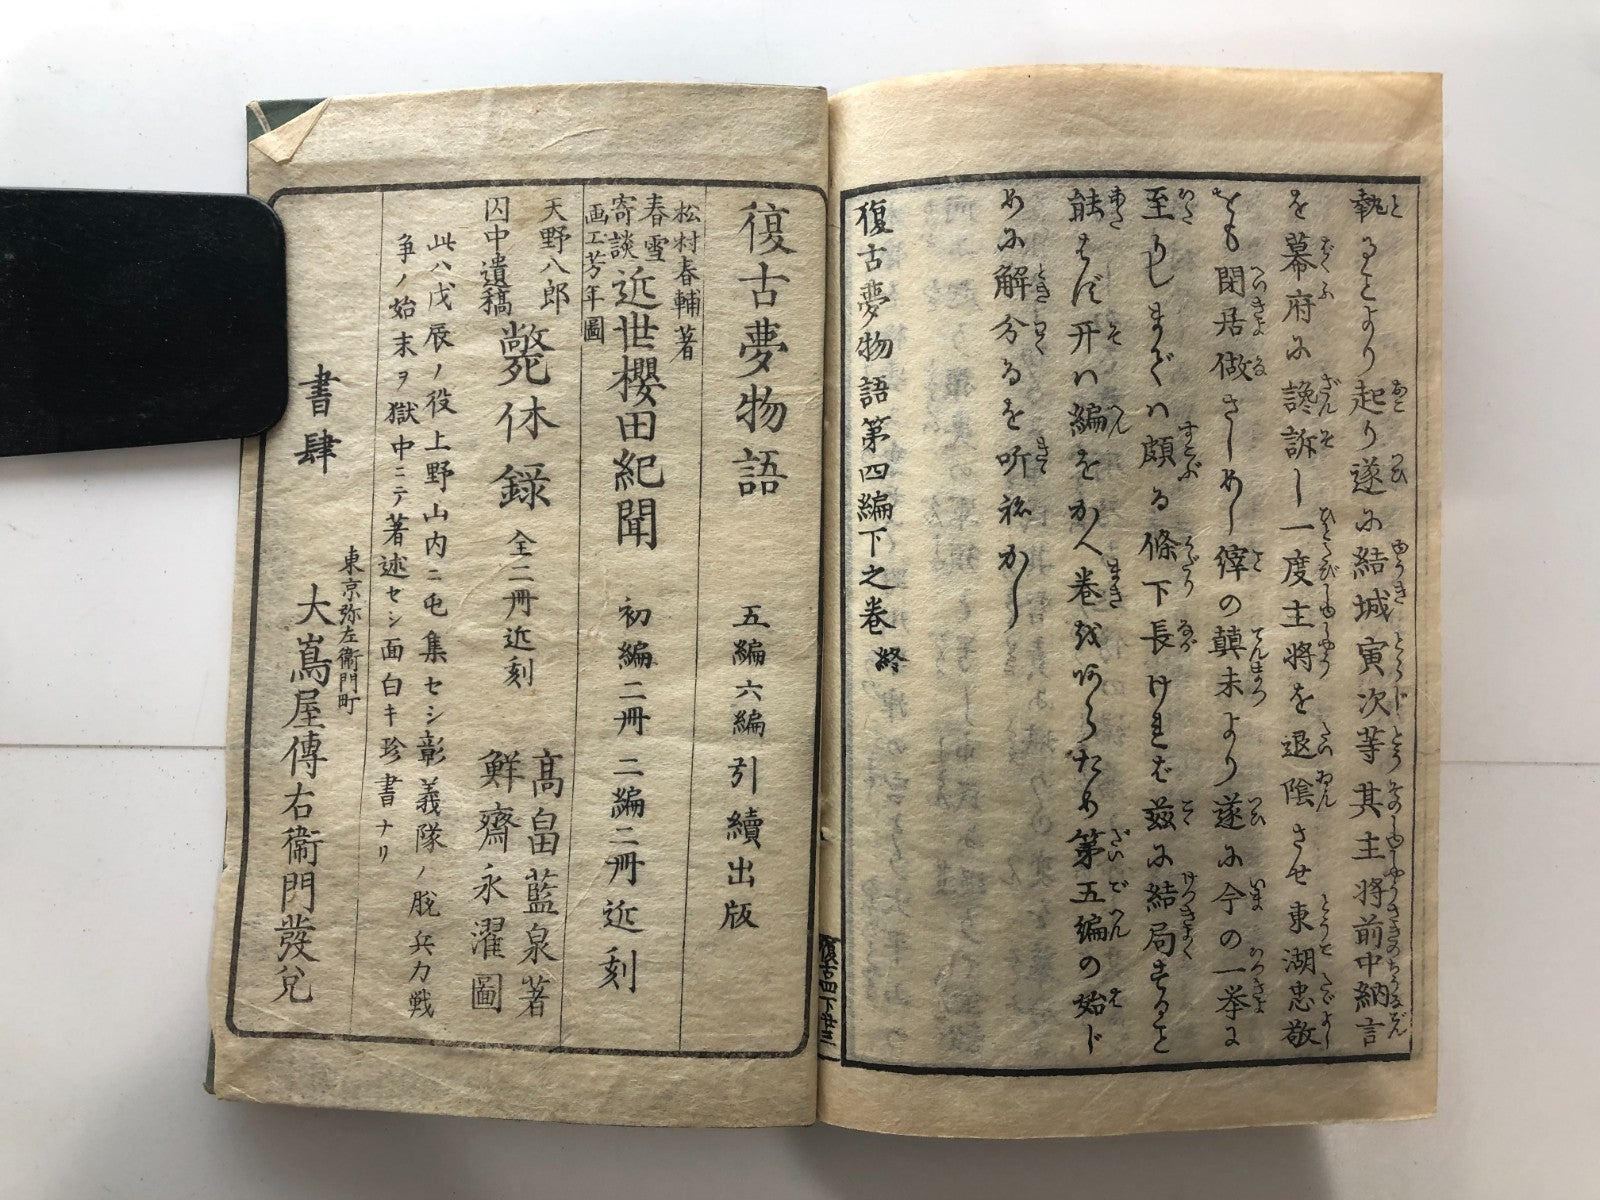 執るとより起り遂に結城寅次等其主將前中納言
を幕府に讒訴し一度主將を退隠させ東湖忠敬
をも閉居做さしめし縡の顛末より遂に今の一挙に
至りしまでハ頗る條下長けれども茲に結局すること
能はず开ハ編をかへ巻を
あらため第五編の始め
に解分るを听ねかし
復古夢物語第四編下之巻 終
復古四下 廿三
復古夢物語 五編六編引續出版
松村春輔著
春雪寄談 近世櫻田紀聞 初編二冊 二編二冊近刻
画工芳年圖
天野八郎囚中遺稿 斃休録 全二冊近刻 高畠藍泉著 鮮齋永濯圖
此ハ戊辰ノ役上野山内ニ屯集セシ彰義隊ノ脱兵力戦
争ノ始末ヲ獄中ニテ著述セシ面白キ珍書ナリ
東京弥左衞門町
書肆 大嶌屋傳右衞門發兌